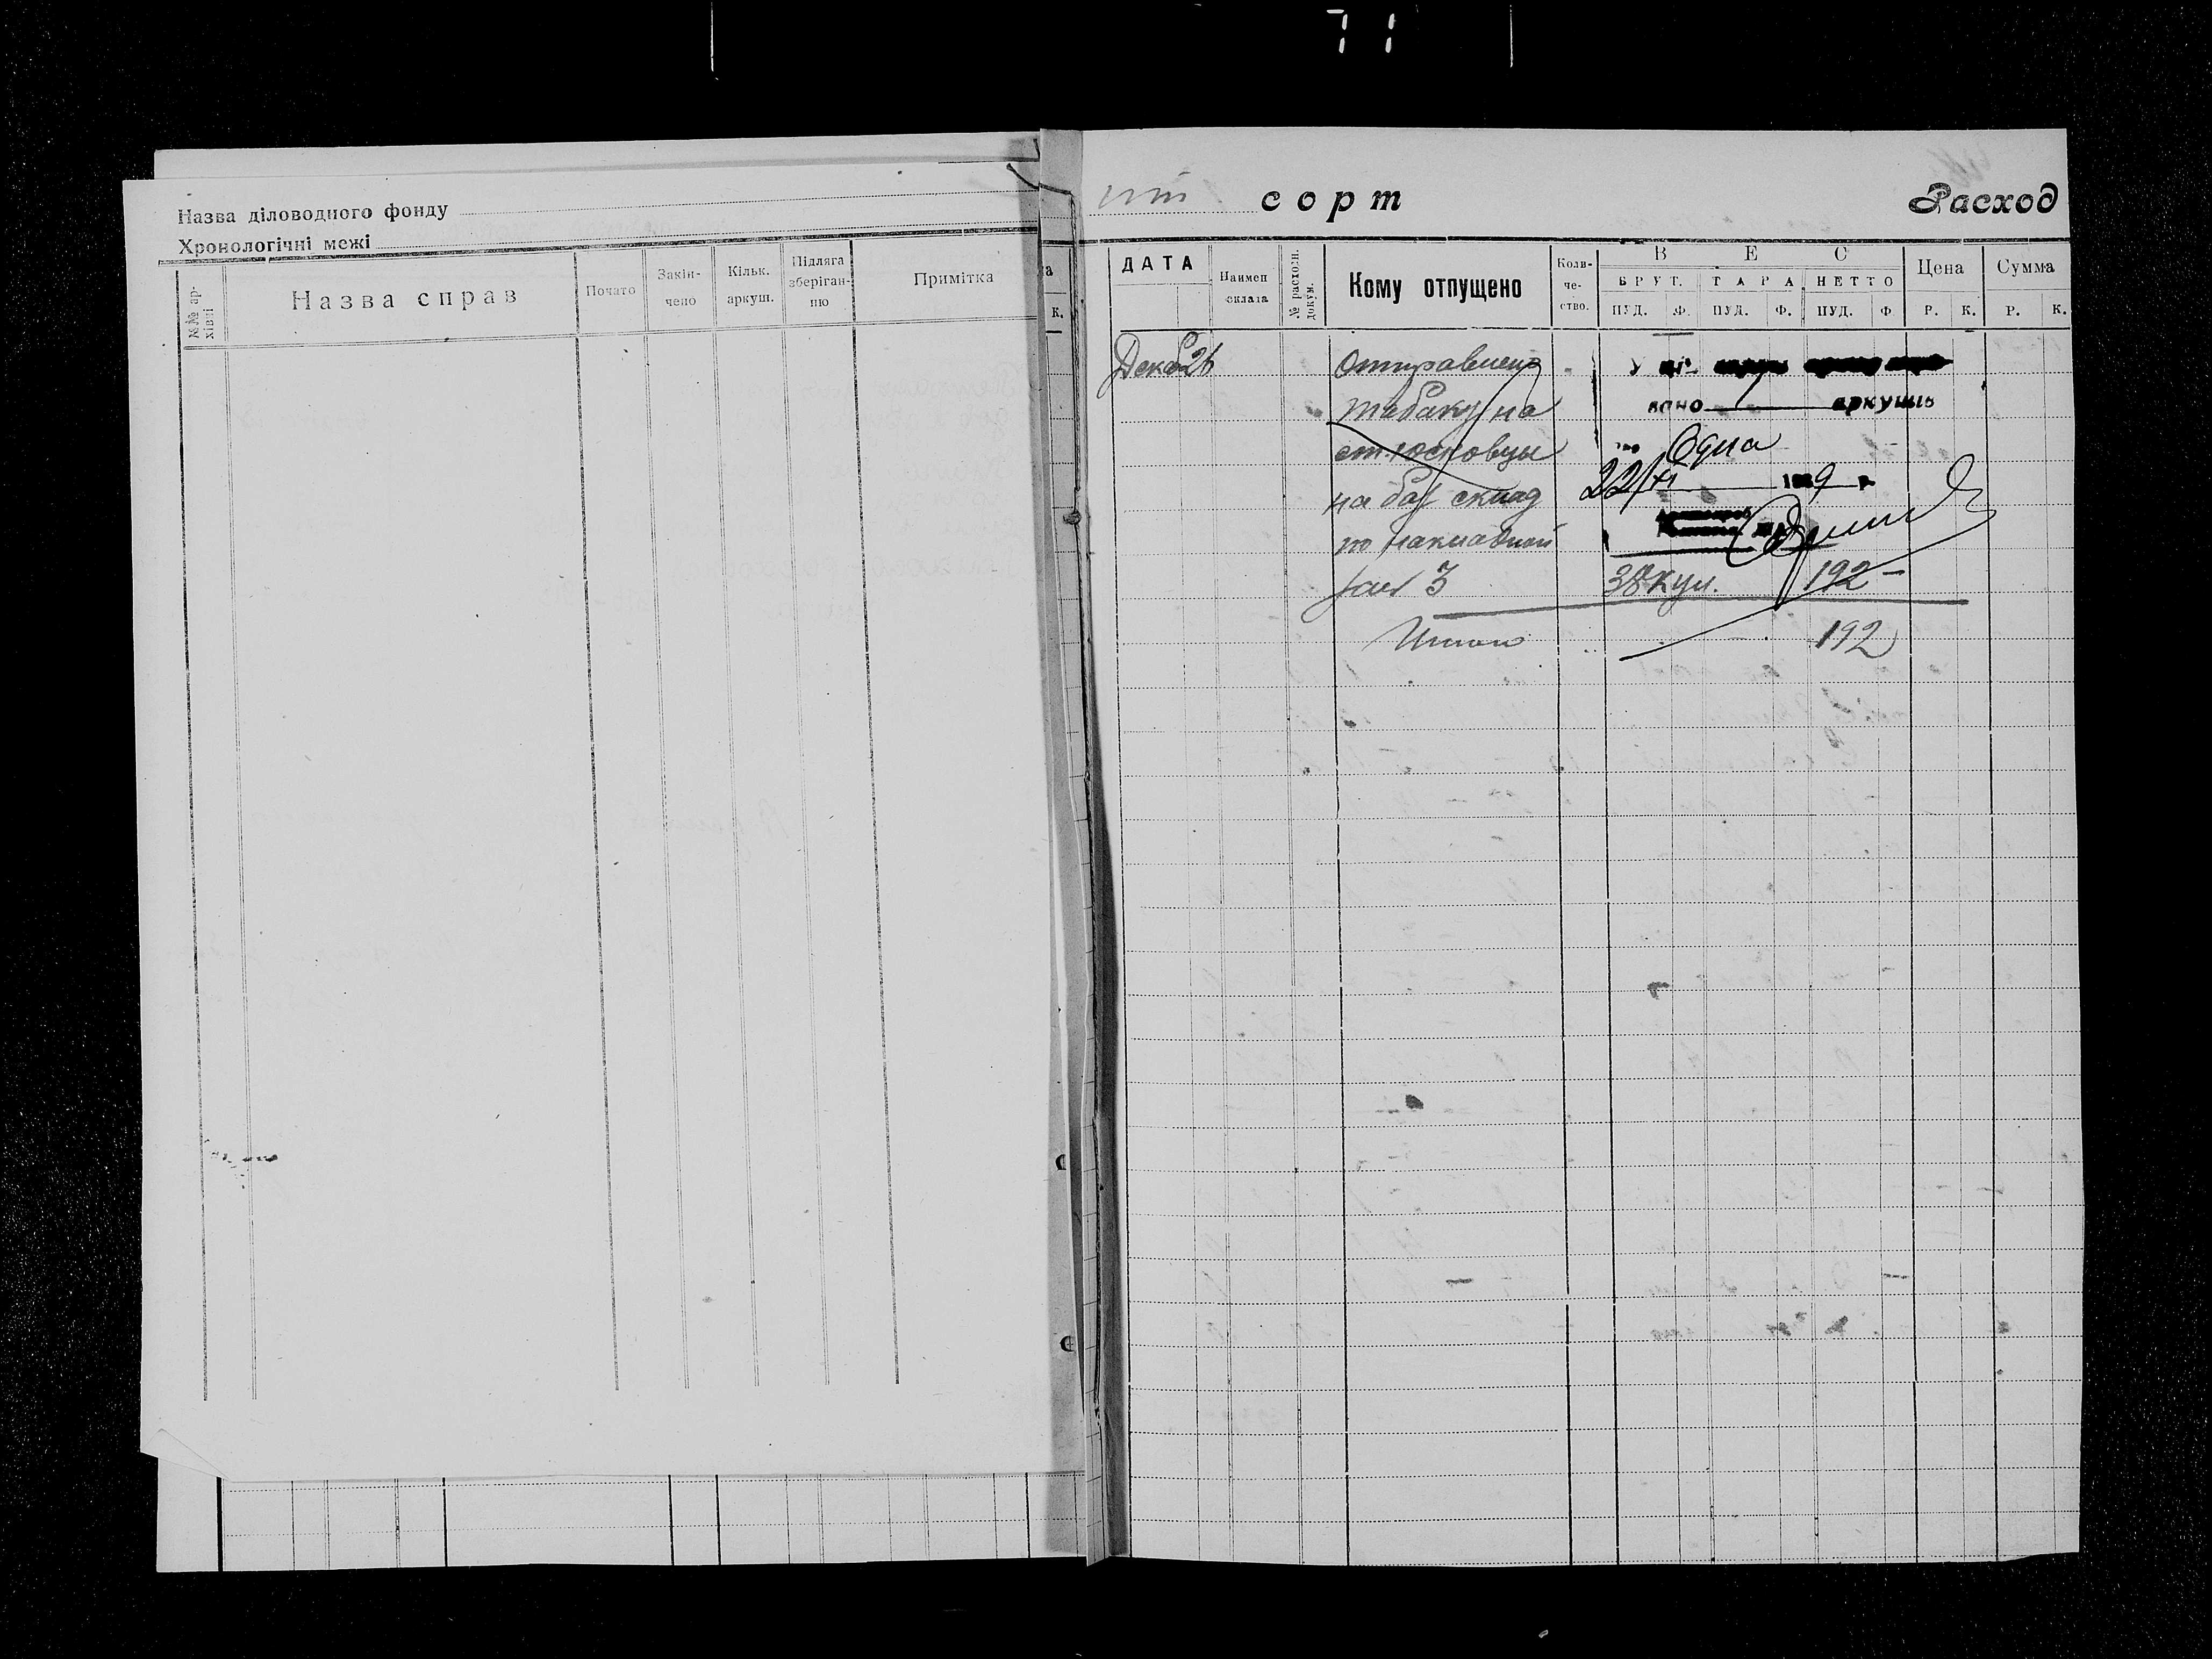 71
Назва діловодного фонду
Хронологічні межі
№№ архівні
Назва справ
Почато
Закінчено
Кільк. аркуш.
Підлягає зберіганню
Примітка
К.
сорт
Расход
ДАТА
Наимен склада
№ расходн. докум.
Кому отпущено
Количество.
ВЕС
БРУТ.
ТАРА
НЕТТО
Цена
Сумма
ПУД.
Ф.
ПУД.
Ф.
ПУД.
Ф.
Р.
К.
Р.
К.
Декаб 26
Отправлено
табаку на
ст. Юсковцы
на баз склад
по накладной
за № 3
38 кул.
192 -
Итого
192
вано 1 аркушів
Одна
22/XI 1989 р.